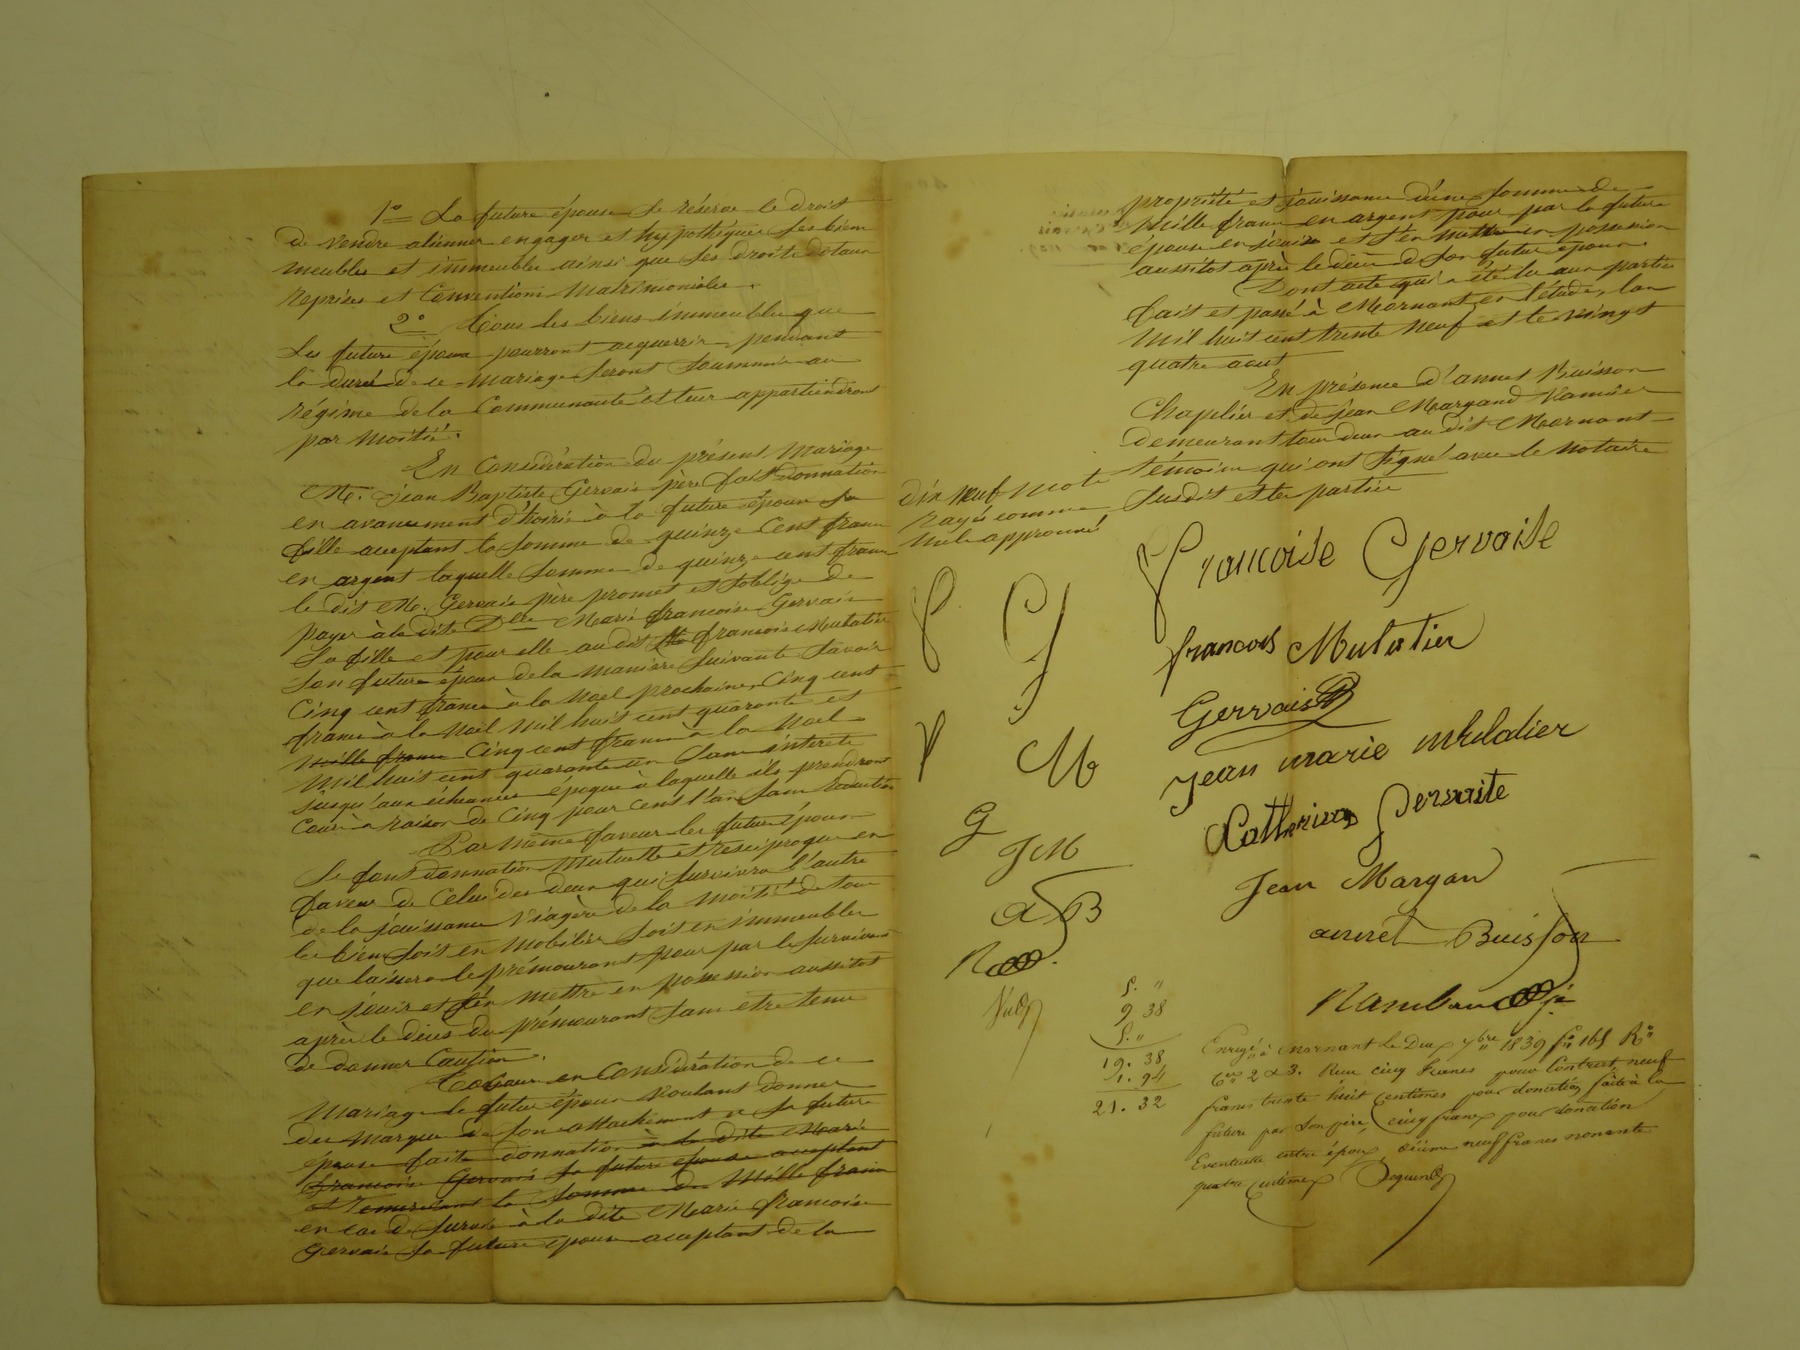 1° La future épouse se réserve le droit
de vendre aliénner engager et hypothéquer ses biens
meubles et immeubles ainsi que ses droits dotaux
reprises et conventions matrimoniales.
2° Tous les biens immeubles que
les future époux pourront acquerrir pendant
la durée de ce mariage seront soummis au
régime de la communauté et leur appartiendront
par moitié.
En considération du présent mariage
M. Jean Baptiste Gervais père fait donnation
en avancement d'hoirie à la future épouse sa
fille acceptant la somme de quinze cent francs
en argent laquelle somme de quinze cent francs
le dit M. Gervais père promet et s'oblige de
payer à la dite Dlle Marie françoise Gervais
sa fille et pour elle au dit françois Mulatier
son future époux de la manière suivante savoir
cinq cent francs à la Noel prochaine, cinq cent
francs à la Noel mil huit cent quarante et
mille francs cinq cent francs à la Noel
mil huit cent quarante un sans intérêts
jusqu'aux échéances époque à laquelle ils prendront
cour à raison de cinq pour cent l'an sans réduction
Par même faveur les futurs époux
se font donnation mutuelle et réciproque en
faveur de celui des deux qui survivra l'autre
de la jouissance viagère de la moitié de tous
les biens soit en mobilier soit en immeubles
que laissera le prémourant pour par le survivant
en jouir et s'en mettre en possession aussitot
après le décès du prémourant sans etre tenu
de donner caution.
en considération de ce
mariage le futur époux voulant donner
des marques de son attachement à sa future
épouse faite donnation à la dite Marie
françoise Gervais sa future épouse acceptant
et remerciant la somme de mille francs
en cas de survie à la dite Marie françoise
Gervais sa future épouse acceptant de la
propriété et jouissance d'une somme de
mille francs en argent pour par la future
épouse en jouir et s'en mettre en possession
aussitot après le décès de son futur époux.
Dont acte qui a été lu aux parties
fait et passé à Mornant en l'étude, l'an
mil huit cent trente neuf et le vingt
quatre aout
En présence d'annet Buisson
Chaplier et de jean Margand Vannier
demeurant tous deux au dit Mornant
témoins qui ont signé avec le notaire
susdit et les parties
dix neuf mots
rayés comme
nuls approuvé
françoise Gervaise
francois Mulatier
Gervais B
Jean marie muladier
Catherine Gervaite
Jean Margan
annet Buisson
F G
f M
G
JM
AB
5. "
9 38
5. "
19. 38
1. 94
21. 32
Enregé à Mornant le Deux 7bre 1839 fo 165 Ro
Ces 2 & 3. Recu cinq francs pour Contrat, neuf
francs trente huit centimes pour donation faite à la
future par son père, cinq francs pour donation
Eventuelle entre époux, décime neuf francs nonante
quatre centimes